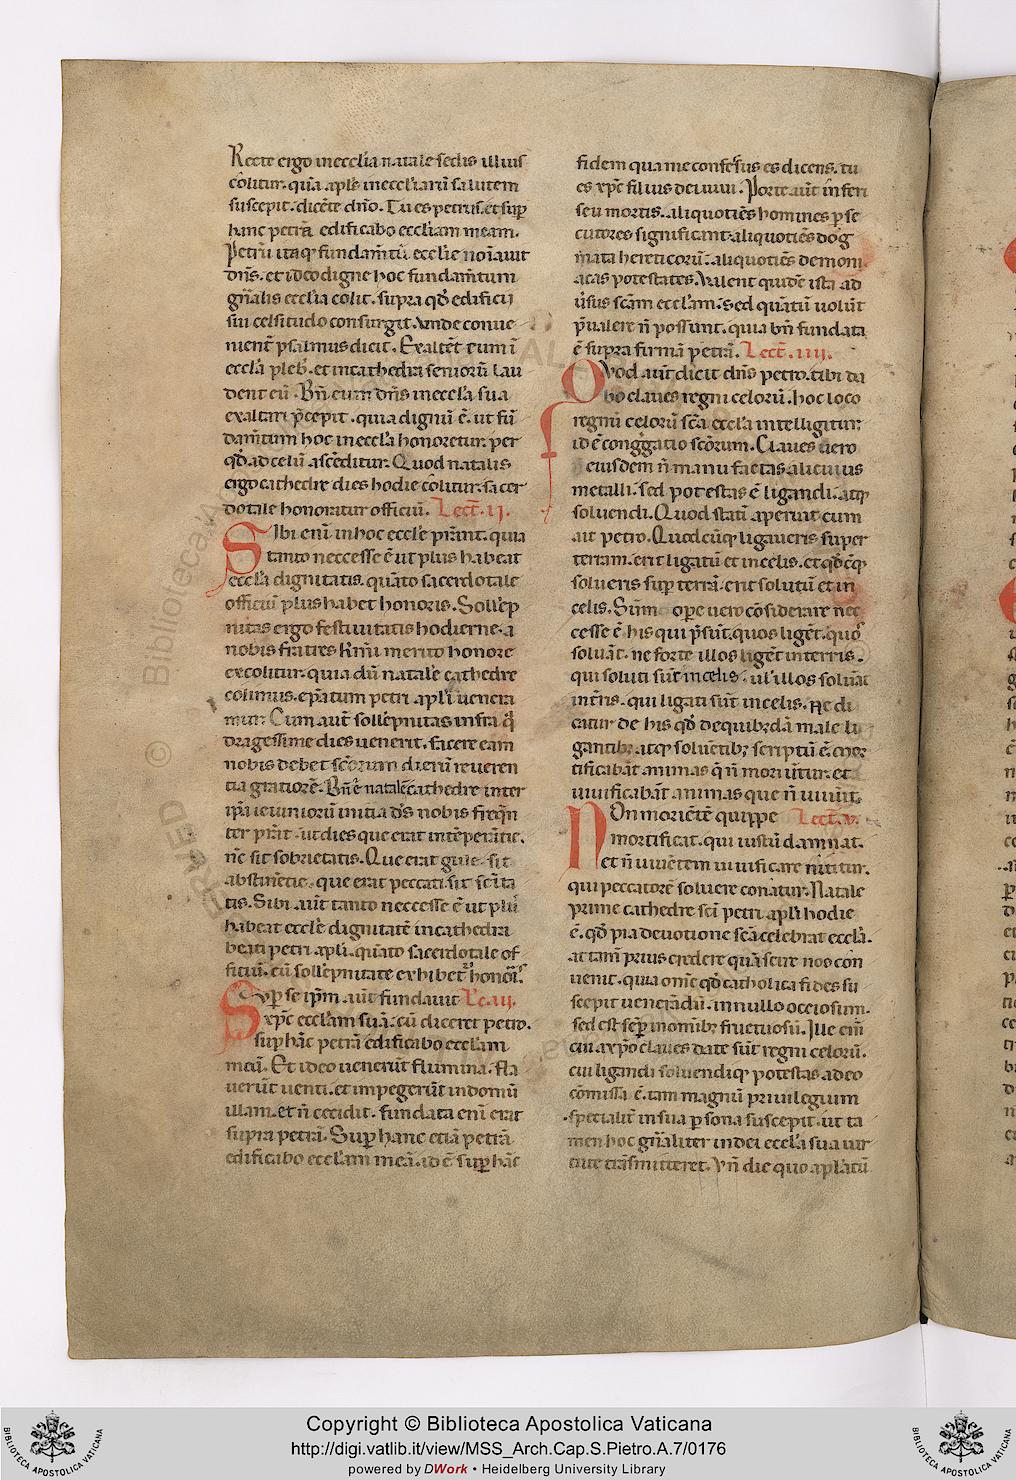 Recte ergo ineccl̄ia natale sedis illius
colitur. quā apl̄s ineccl̄iarū salutem
suscepit. dicēte dn̄o. Tu es petrus. et sup̄
hanc petrā edificabo eccl̄iam meam.
Petrū itaq; fundam̄tū eccl̄ie noīauit
dn̄s. et ideo digne hoc fundam̄tum
gn̄alis eccl̄ia colit. supra qd̄ edificij
sui celsitudo consurgit. Vnde conue
nient̄ psalmus dicit. Exaltēt eum ī
eccl̄a pleb̄. et incathedra seniorū lau
dent eū. Bn̄ eum dn̄s ineccl̄a sua
exaltari p̄cepit. quia dignū ē. ut fū
dam̄tum hoc ineccl̄a honoretur. per
qd̄ ad celū ascēditur. Quod natalis
ergo cathedre dies hodie colitur. sacer
dotale honoratur officiū. Lect̄. ii.
Sibi enī inhoc eccl̄e p̄rant. quia
tanto neccesse ē ut plus habeat
eccl̄a dignitatis. quāto sacerdotale
officiū plus habet honoris. Soll̄ep
nitas ergo festiuitatis hodierne. a
nobis fratres kr̄mi merito honore
excolitur. quia dū natale cathedre
colimus. ep̄atum petri apl̄i uenera
mur. Cum aut̄ sollēpnitas infra q̄
dragessime dies uenerit. facere eam
nobis debet scōrum dierū reueren
tia gratiorē. Bn̄ ē natalē cathedre inter
ip̄a ieiuniorū initia dn̄s nobis freqn̄
ter p̄rat. ut dies que erat intēperātie.
nc̄ sit sobrietatis. Que erat gule. sit
abstinētie. que erat peccati. sit scīta
tis. Sibi aut̄ tanto neccesse ē ut plus
habeat eccl̄e dignitatē incathedra
beati petri apl̄i. quāto sacerdotale of
ficiū. cū sollēpnitate exhibet̄ honōr̄.
Sup̄ se ip̄m aut̄ fundauit Lc̄. iii.
xp̄c eccl̄am suā. cū diceret petro.
sup̄ hāc petrā edificabo eccl̄am
meā. Et ideo uenerūt flumina. fla
uerūt uenti. et impegerūt indomū
illam. et n̄ cecidit. fundata enī erat
supra petrā. Sup̄ hanc etiā petrā
edificabo eccl̄am meā. id ē sup̄ hāc
fidem qua me confessus es dicens. tu
es xp̄c filius dei uiui. Porte aut̄ inferi
seu mortis. aliquotiēs homines p̄se
cutores significant. aliquotiēs dog
mata hereticorū. aliquotiēs demoni
acas potestates. Valent quidē ista ad
uersus scām eccl̄am. sed quātū uolūt
p̄ualere n̄ possunt. quia bn̄ fundata
ē supra firmā petrā. Lect̄. iiii.
Quod aut̄ dicit dn̄s petro. tibi da
bo claues regni celorū. hoc loco
regnū celorū scā eccl̄a intelligitur.
id ē congḡatio scōrum. Claues uero
eiusdem n̄ manu factas alicuius
metalli. sed potestas ē ligandi. atq;
soluendi. Quod stati aperuit cum
ait petro. Quodcūq; ligaueris super
terram. erit ligatū et incelis. et qd̄cq;
solueris sup̄ terrā. erit solutū et in
celis. Sum̄ope uero cōsiderare nec
cesse ē his qui p̄sūt. quos ligēt. quos
soluāt. ne forte illos ligēt interris.
qui soluti sūt incelis. ul̄ illos soluāt
int̄ris. qui ligati sūt incelis. Ne di
catur de his qd̄ de quibƺdā male li
gantibƺ. atq; soluētibƺ scriptū ē. mor
tificabāt animas q̄ n̄ moriūtur. et
uiuificabāt animas que n̄ uiuūt.
Non moriētē quippe Lect̄. v.
mortificat. qui iustū damnat.
et n̄ uiuētem uiuificare nititur.
qui peccatorē soluere conatur. Natale
prime cathedre scī petri apl̄i hodie
ē. qd̄ pia deuotione scā celebrat eccl̄a.
at tam̄ prius credere quā scire nos con
uenit. quia omē qd̄ catholica fides su
scepit uenerādū. innullo occiosum.
sed est semp̄ inomībƺ fructuosū. Ille em̄
cui a xp̄o claues date sūt regni celorū.
cui ligandi soluendiq; potestas adeo
cōmissa ē. tam magnū priuilegium
specialit̄ insua p̄sona suscepit. ut ta
men hoc gn̄aliter indei eccl̄a sua uir
tute trāsmitteret. Vn̄ die quo ap̄latū
Copyright © Biblioteca Apostolica Vaticana
http://digi.vatlib.it/view/MSS_Arch.Cap.S.Pietro.A.7/0176
powered by DWork • Heidelberg University Library
BIBLIOTECA APOSTOLICA VATICANA
BIBLIOTECA APOSTOLICA VATICANA